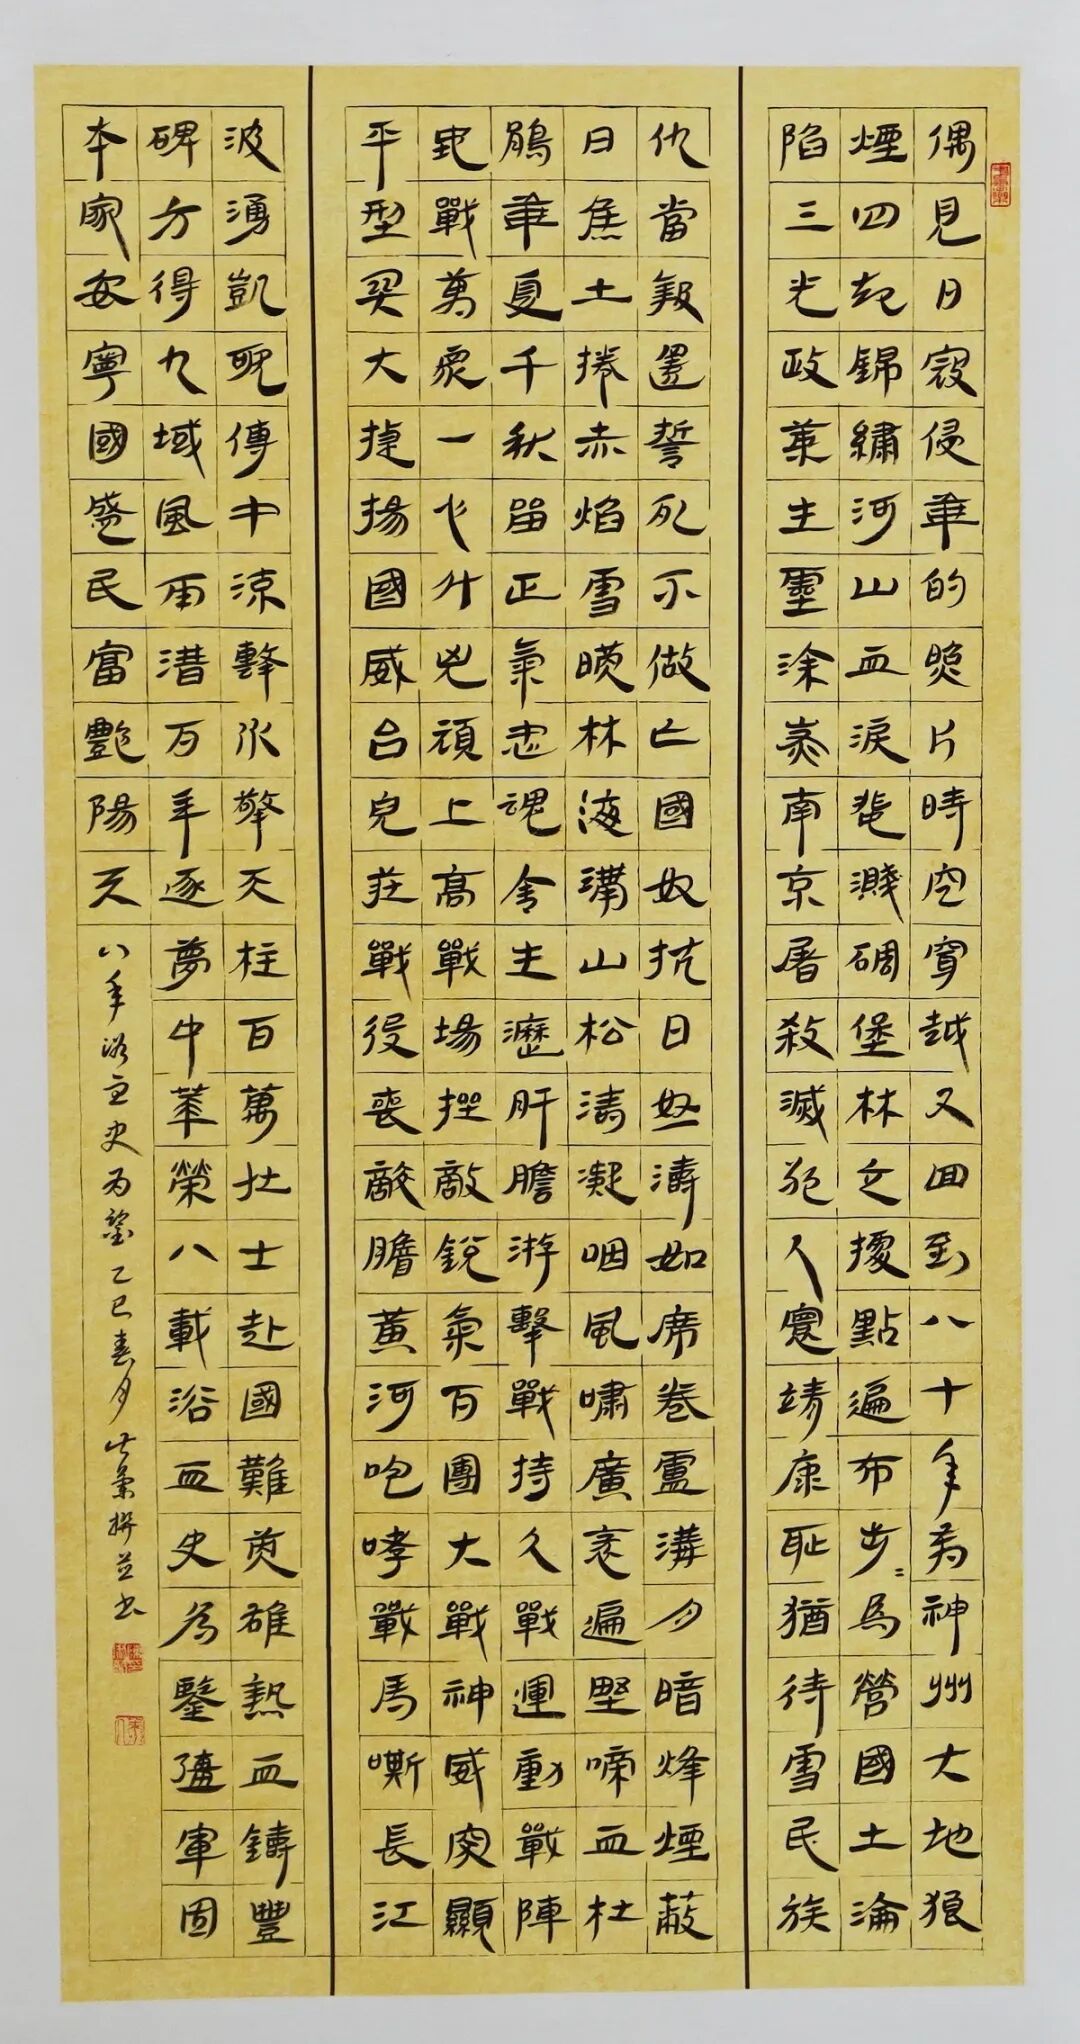 偶見日寇侵華的照片時空穿越又回到八十年前神州大地狼
煙四起錦繡河山血淚飛濺碉堡林立據點遍布步=為營國土淪
陷三光政策生靈涂炭南京屠殺滅絕人寰靖康恥猶待雪民族
仇當報還誓死不做亡國奴抗日怒濤如席卷盧溝月暗烽煙蔽
日焦土捲赤焰雪暎林海滿山松濤凝咽風嘯廣袤遍野啼血杜
鵑華夏千秋留正氣忠魂舍生瀝肝膽游擊戰持久戰運動戰陣
地戰萬眾一心鬥兇頑上高戰場挫敵銳氣百團大戰神威突顯
平型関大捷揚國威台兒莊戰役喪敵膽黃河咆哮戰馬嘶長江
波湧凱歌傳中流擊水擎天柱百萬壯士赴國難英雄熱血鑄豐
碑方得九域風雨潛万年逐夢中華榮八載浴血史為鑒彊軍固
本家安寧國盛民富艷陽天
八年浴血史为鑒乙巳春月撰并书